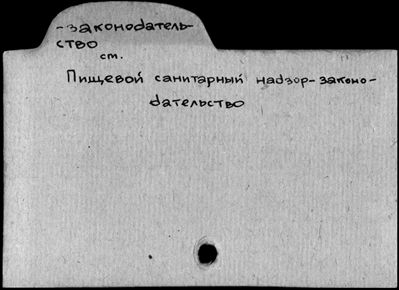 -законодатель-
ство
ст.
Пищевой санитарный надзор-законо-
дательство